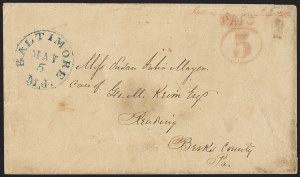 BALTIMORE
MAY
5
Md.
PAID
5
Miss Susan Julia Mayer
Care of Geo. M. Keim Esqr
Reading
Berks County
Pa.